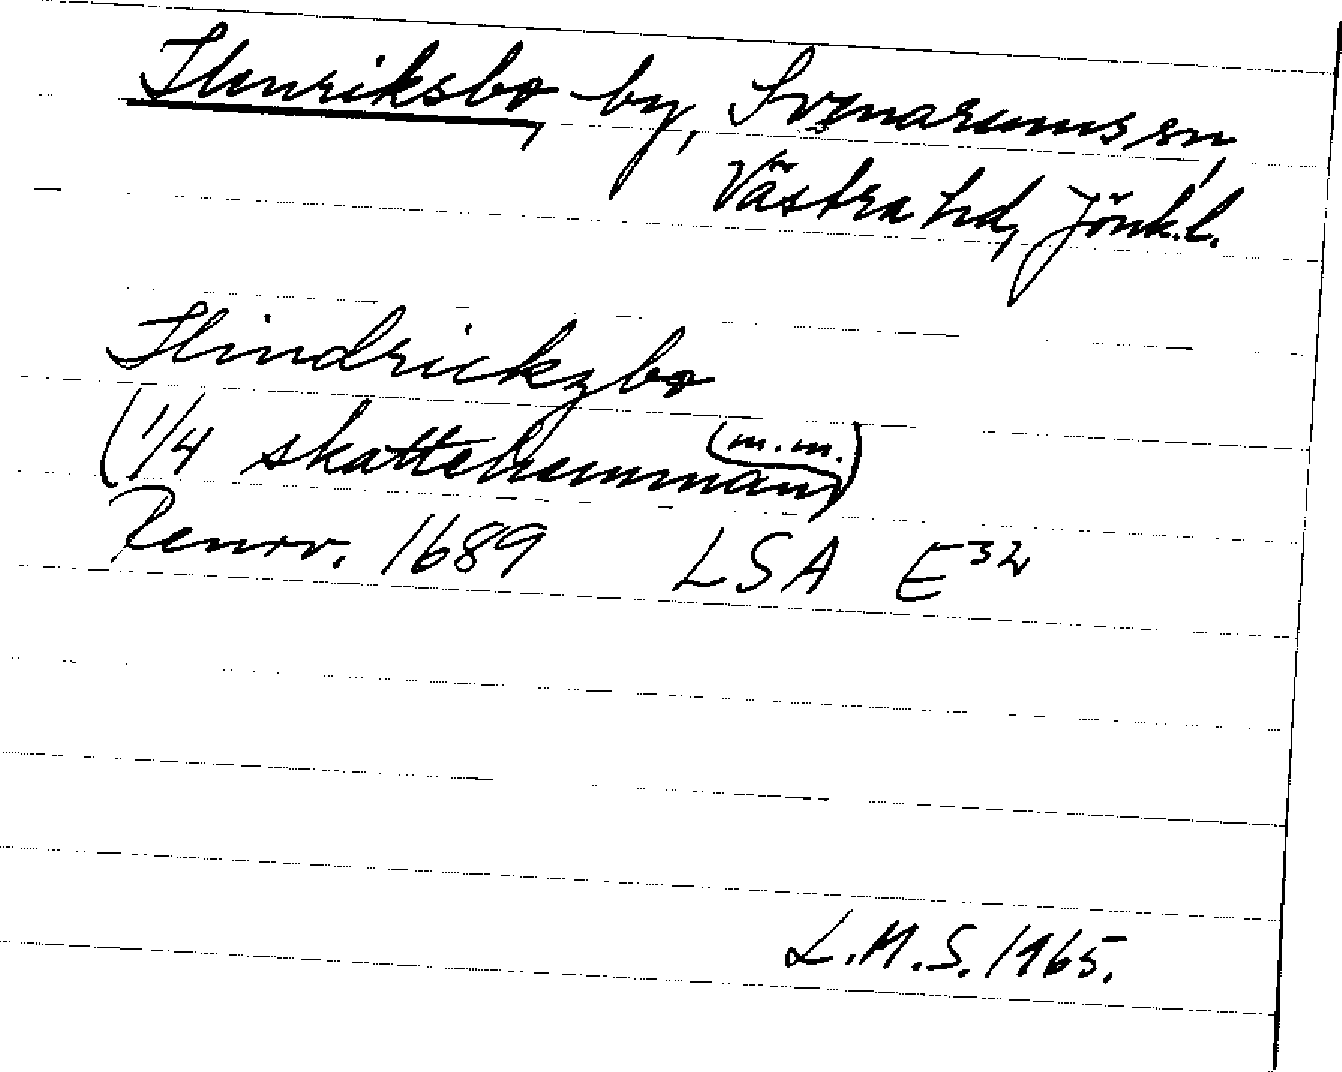 Henriksbo, by, Svenarums sn,
Västra hd, Jönk.l.
Hindrickzbo
(1/4 skattehemman) (m.m.)
Renov. 1689 LSA E32
L.M.S. 1965.